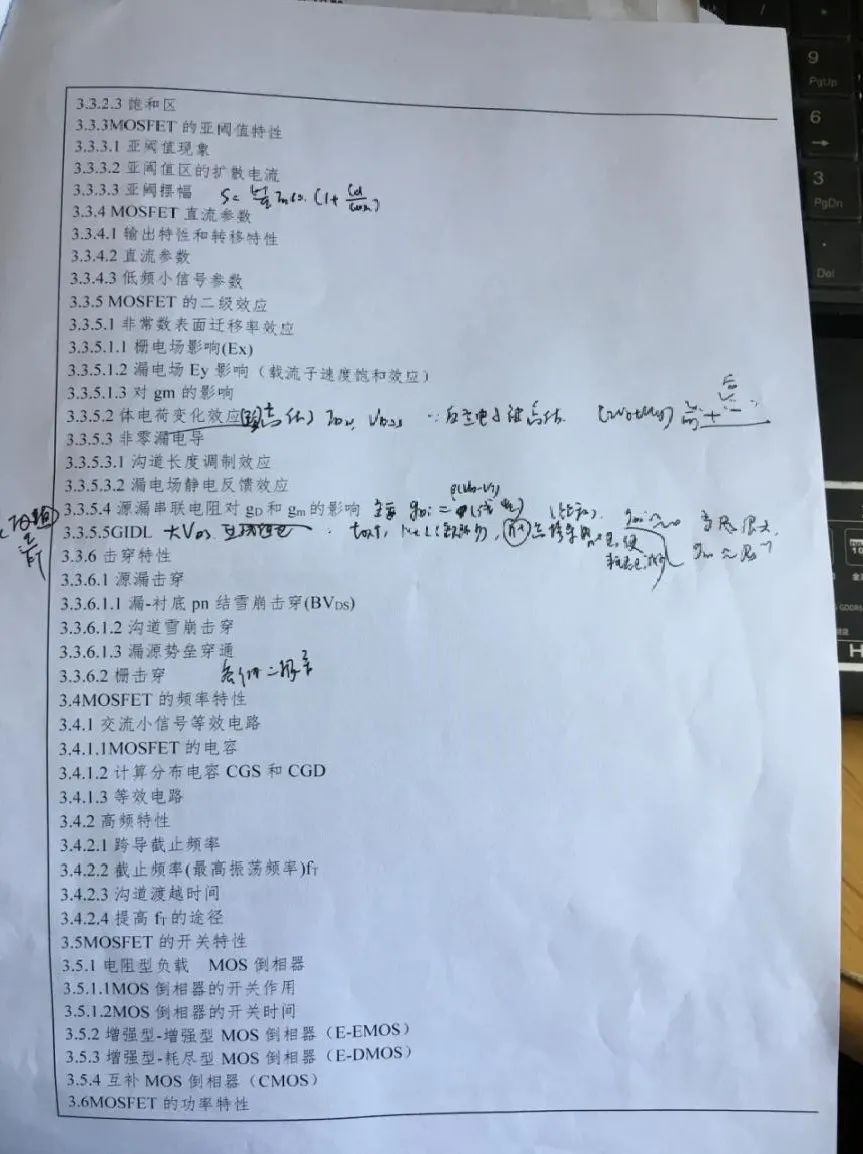 3.3.2.3 饱和区
3.3.3MOSFET 的亚阈值特性
3.3.3.1 亚阈值现象
3.3.3.2 亚阈值区的扩散电流
3.3.3.3 亚阈摆幅
3.3.4 MOSFET 直流参数
3.3.4.1 输出特性和转移特性
3.3.4.2 直流参数
3.3.4.3 低频小信号参数
3.3.5 MOSFET 的二级效应
3.3.5.1 非常数表面迁移率效应
3.3.5.1.1 栅电场影响(Ex)
3.3.5.1.2 漏电场 Ey 影响（载流子速度饱和效应）
3.3.5.1.3 对 gm 的影响
3.3.5.2 体电荷变化效应
3.3.5.3 非零漏电导
3.3.5.3.1 沟道长度调制效应
3.3.5.3.2 漏电场静电反馈效应
3.3.5.4 源漏串联电阻对 gD 和 gm 的影响
3.3.5.5GIDL
3.3.6 击穿特性
3.3.6.1 源漏击穿
3.3.6.1.1 漏-衬底 pn 结雪崩击穿(BVDS)
3.3.6.1.2 沟道雪崩击穿
3.3.6.1.3 漏源势垒穿通
3.3.6.2 栅击穿
3.4MOSFET 的频率特性
3.4.1 交流小信号等效电路
3.4.1.1MOSFET 的电容
3.4.1.2 计算分布电容 CGS 和 CGD
3.4.1.3 等效电路
3.4.2 高频特性
3.4.2.1 跨导截止频率
3.4.2.2 截止频率(最高振荡频率)fT
3.4.2.3 沟道渡越时间
3.4.2.4 提高 fT 的途径
3.5MOSFET 的开关特性
3.5.1 电阻型负载 MOS 倒相器
3.5.1.1MOS 倒相器的开关作用
3.5.1.2MOS 倒相器的开关时间
3.5.2 增强型-增强型 MOS 倒相器（E-EMOS）
3.5.3 增强型-耗尽型 MOS 倒相器（E-DMOS）
3.5.4 互补 MOS 倒相器（CMOS）
3.6MOSFET 的功率特性
9
PgUp
6
→
3
PgDn
.
Del